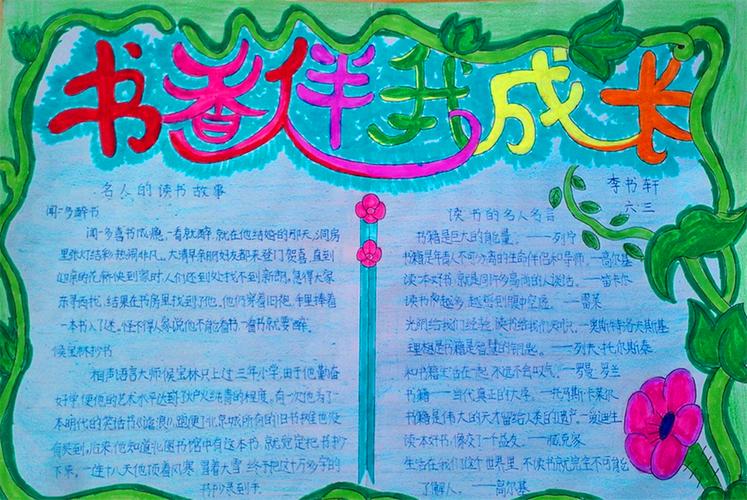 书香伴我成长
名人的读书故事
闻一多醉书
闻一多喜书成瘾,一看就醉,就在他结婚的那天,洞房
里张灯结彩,热闹非凡。大清早亲朋好友都来登门贺喜,直到
迎亲的花轿快到家时,人们还到处找不到新郎,急得大家
东寻西找,结果在书房里找到了他。他仍穿着旧袍,手里捧着
一本书入了迷。怪不得人家说他不能看书,一看书就要醉。
侯宝林抄书
相声语言大师侯宝林只上过三年小学,由于他勤奋
好学,使他的艺术水平达到了炉火纯青的程度,有一次,他为了
一本明代的笑话书《谑浪》,跑遍了北京城所有的旧书摊也没
有买到,后来,他知道北图书馆中有这本书,就决定把书抄
下来,一连十八天,他顶着风寒,冒着大雪,终于把这十万多字的
书抄录到手。
李书轩
六·三
读书的名人名言
书籍是巨大的能量。——列宁
书籍是年青人不可分离的生命伴侣和导师。——高尔基
读一本好书,就是同许多高尚的人谈话。——笛卡尔
读书愈多,越感到腹中空虚。——雪莱
光明给我们经验,读书给我们知识。——奥斯特洛夫斯基
理想是书籍是智慧的钥匙。——列夫·托尔斯泰
和书籍生活在一起,永远不会叹气。——罗曼·罗兰
书籍——当代真正的大学。——托马斯·卡莱尔
书籍是伟大的天才留给人类的遗产。——爱迪生
读一本好书,像交了一个益友。——臧克家
生活在我们这个世界里,不读书就完全不可能
了解人。——高尔基